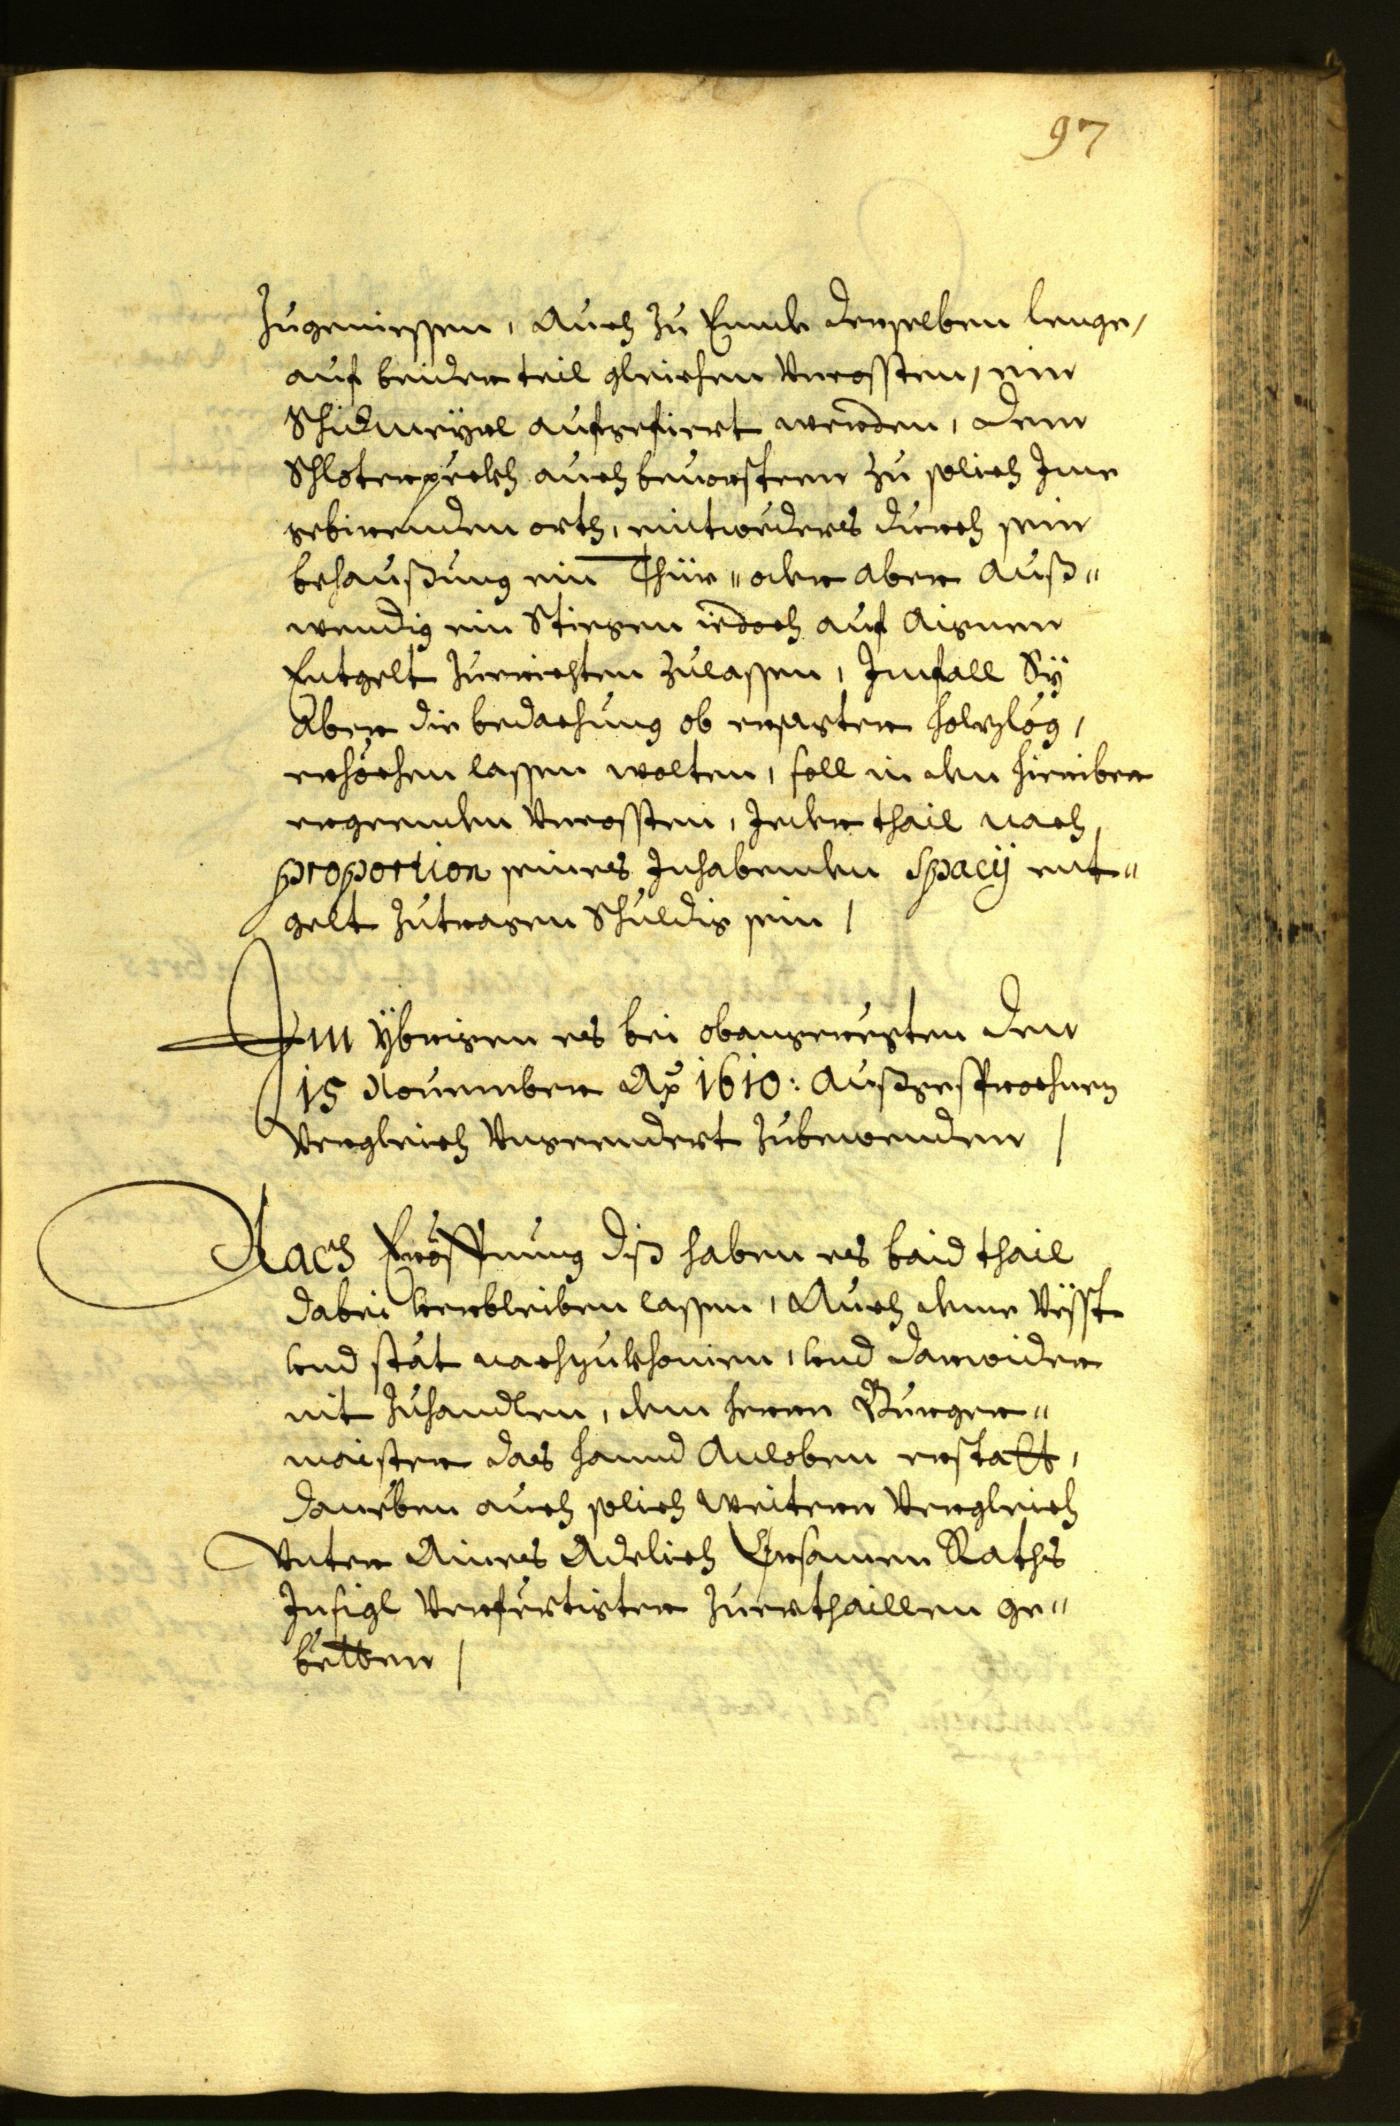 97
zugeniessen, Auch zu Ennde derselben lenge,
auf beider teil gleichen Uncossten, ein
Schidmeyrl aufgefiert werden, dem
Schloterpeckh auch bevorsteen zu solich Ime
gebirenden orth, eintweders durch sein
behaußung ein Thür " oder aber Auß"
wendig ein Stiegen iedoch auf Aignen
Entgelt zurichten zulassen, Imfall Sy
Aber die bedachung ob ersagter holzlög,
erhöchen lassen wolten, soll in den hieriber
ergeenden Uncossten, Jeder thail nach
proportion seines Inhabenden Spacÿ ent"
gelt zutragen Schuldig sein /
Im ÿbrigen es bei obangeregten den
15 November Aō 1610: Außgesprochnen
Vergleich Ungeendert zubewenden /
Nach Eröffnung diß haben es baid thail
dabei verbleiben lassen, Auch deme Vësst
vnd stät nachzukhomen, vnd darwider
nit zuhandlen, dem herrn Burger"
maister das hannd Anloben erstatt,
daneben auch solich weitern Vergleich
Vnter Aines Adelich Ersamen Raths
Insigl Verfertigter zuerthaillen ge"
betten /